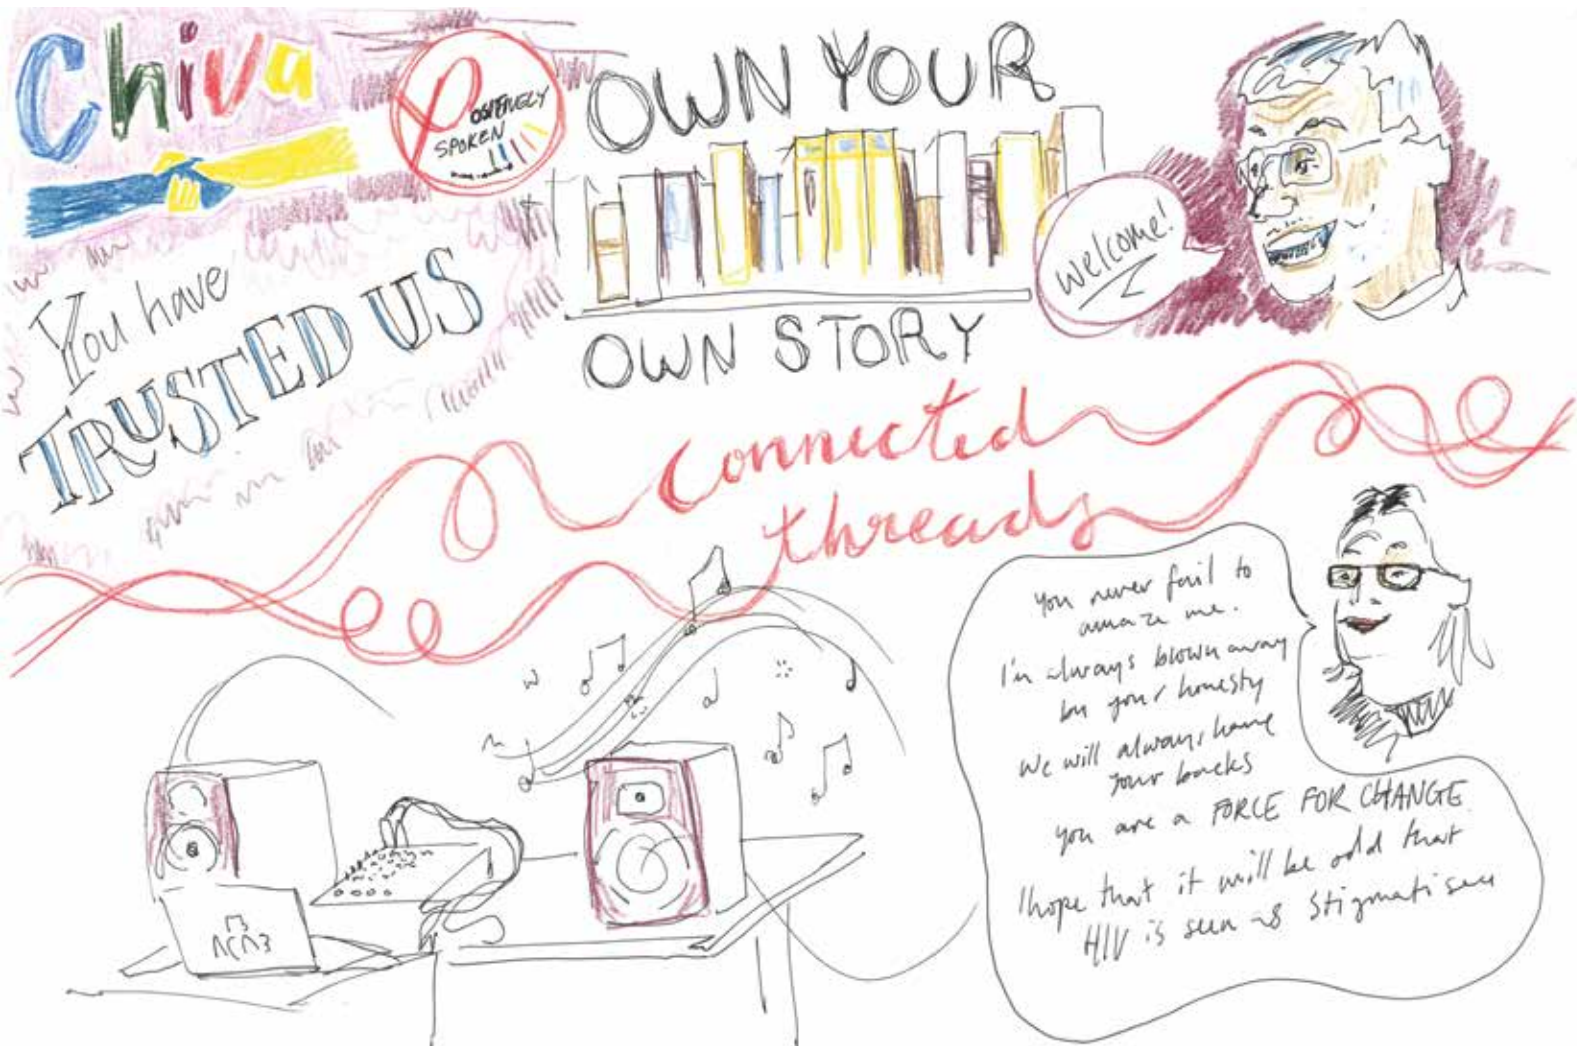 Chiva
Positively
SPOKEN
OWN YOUR
OWN STORY
Welcome!
You have
TRUSTED US
connected
threads
you never fail to
amaze me.
I'm always blown away
by your honesty
we will always have
your backs
you are a FORCE FOR CHANGE
I hope that it will be odd that
HIV is seen as stigmatised